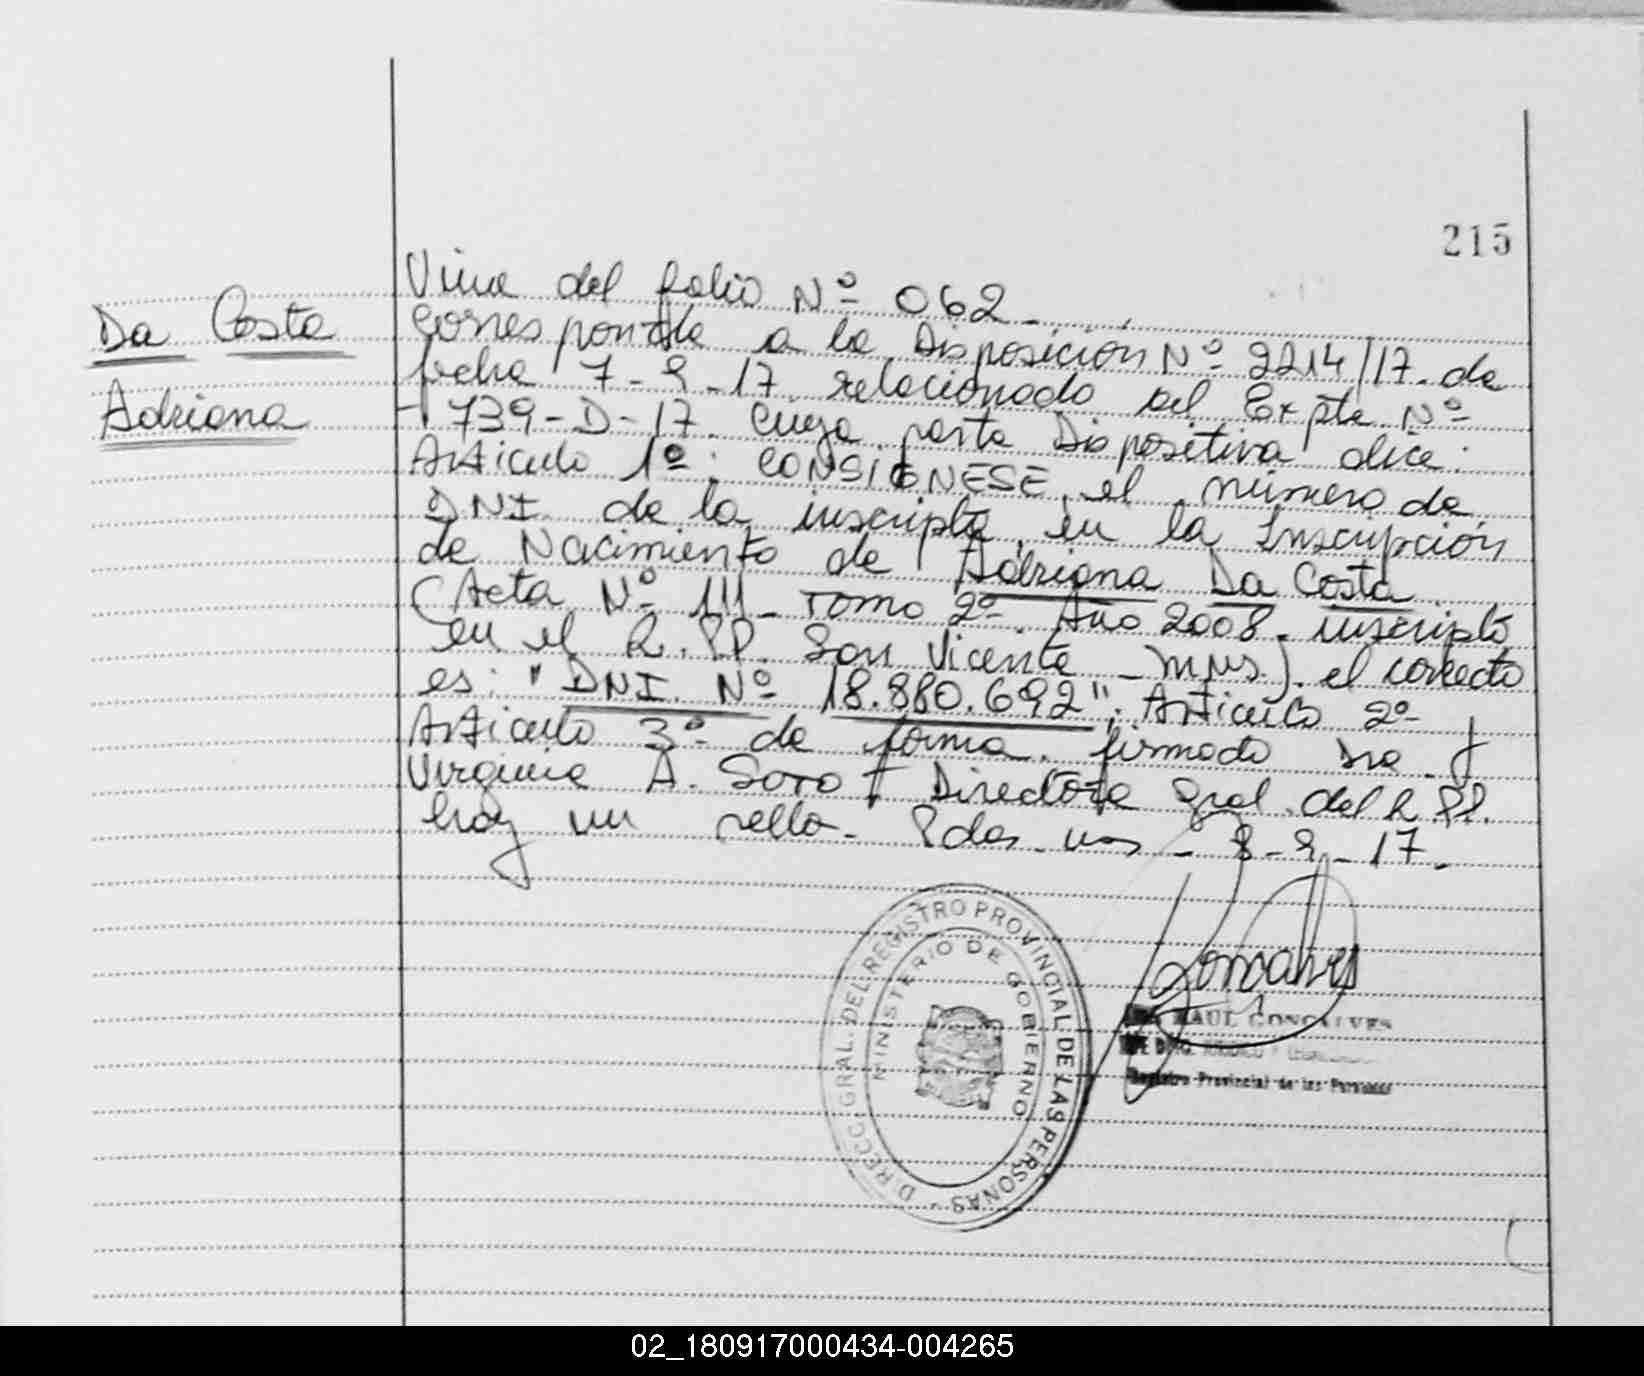 215
Da Costa
Adriana
Viene del folio Nº 062.
Corresponde a la Disposición Nº 2214/17. de
fecha 7-9-17 relacionado al Expte. Nº
1739-D-17. Cuya parte Dispositiva dice:
Artículo 1º: CONSIGNESE, el número de
DNI. de la inscripta, en la Inscripción
de Nacimiento de Adriana Da Costa
(Acta Nº 111 - Tomo 2º. Año 2008. inscripto
en el R.PP. San Vicente - Mnes). el correcto
es: "DNI. Nº 18.880.692". Artículo 2º y
Artículo 3º de forma. firmado Dra.
Virginia A. Soto Directora Gral. del R.PP.
hay un sello. Pdas. Mnes - 8-9-17.
Goncalves
RAUL GONCALVES
Registro Provincial de las Personas
DIRECC. GRAL. DEL REGISTRO PROVINCIAL DE LAS PERSONAS
MINISTERIO DE GOBIERNO
02_180917000434-004265